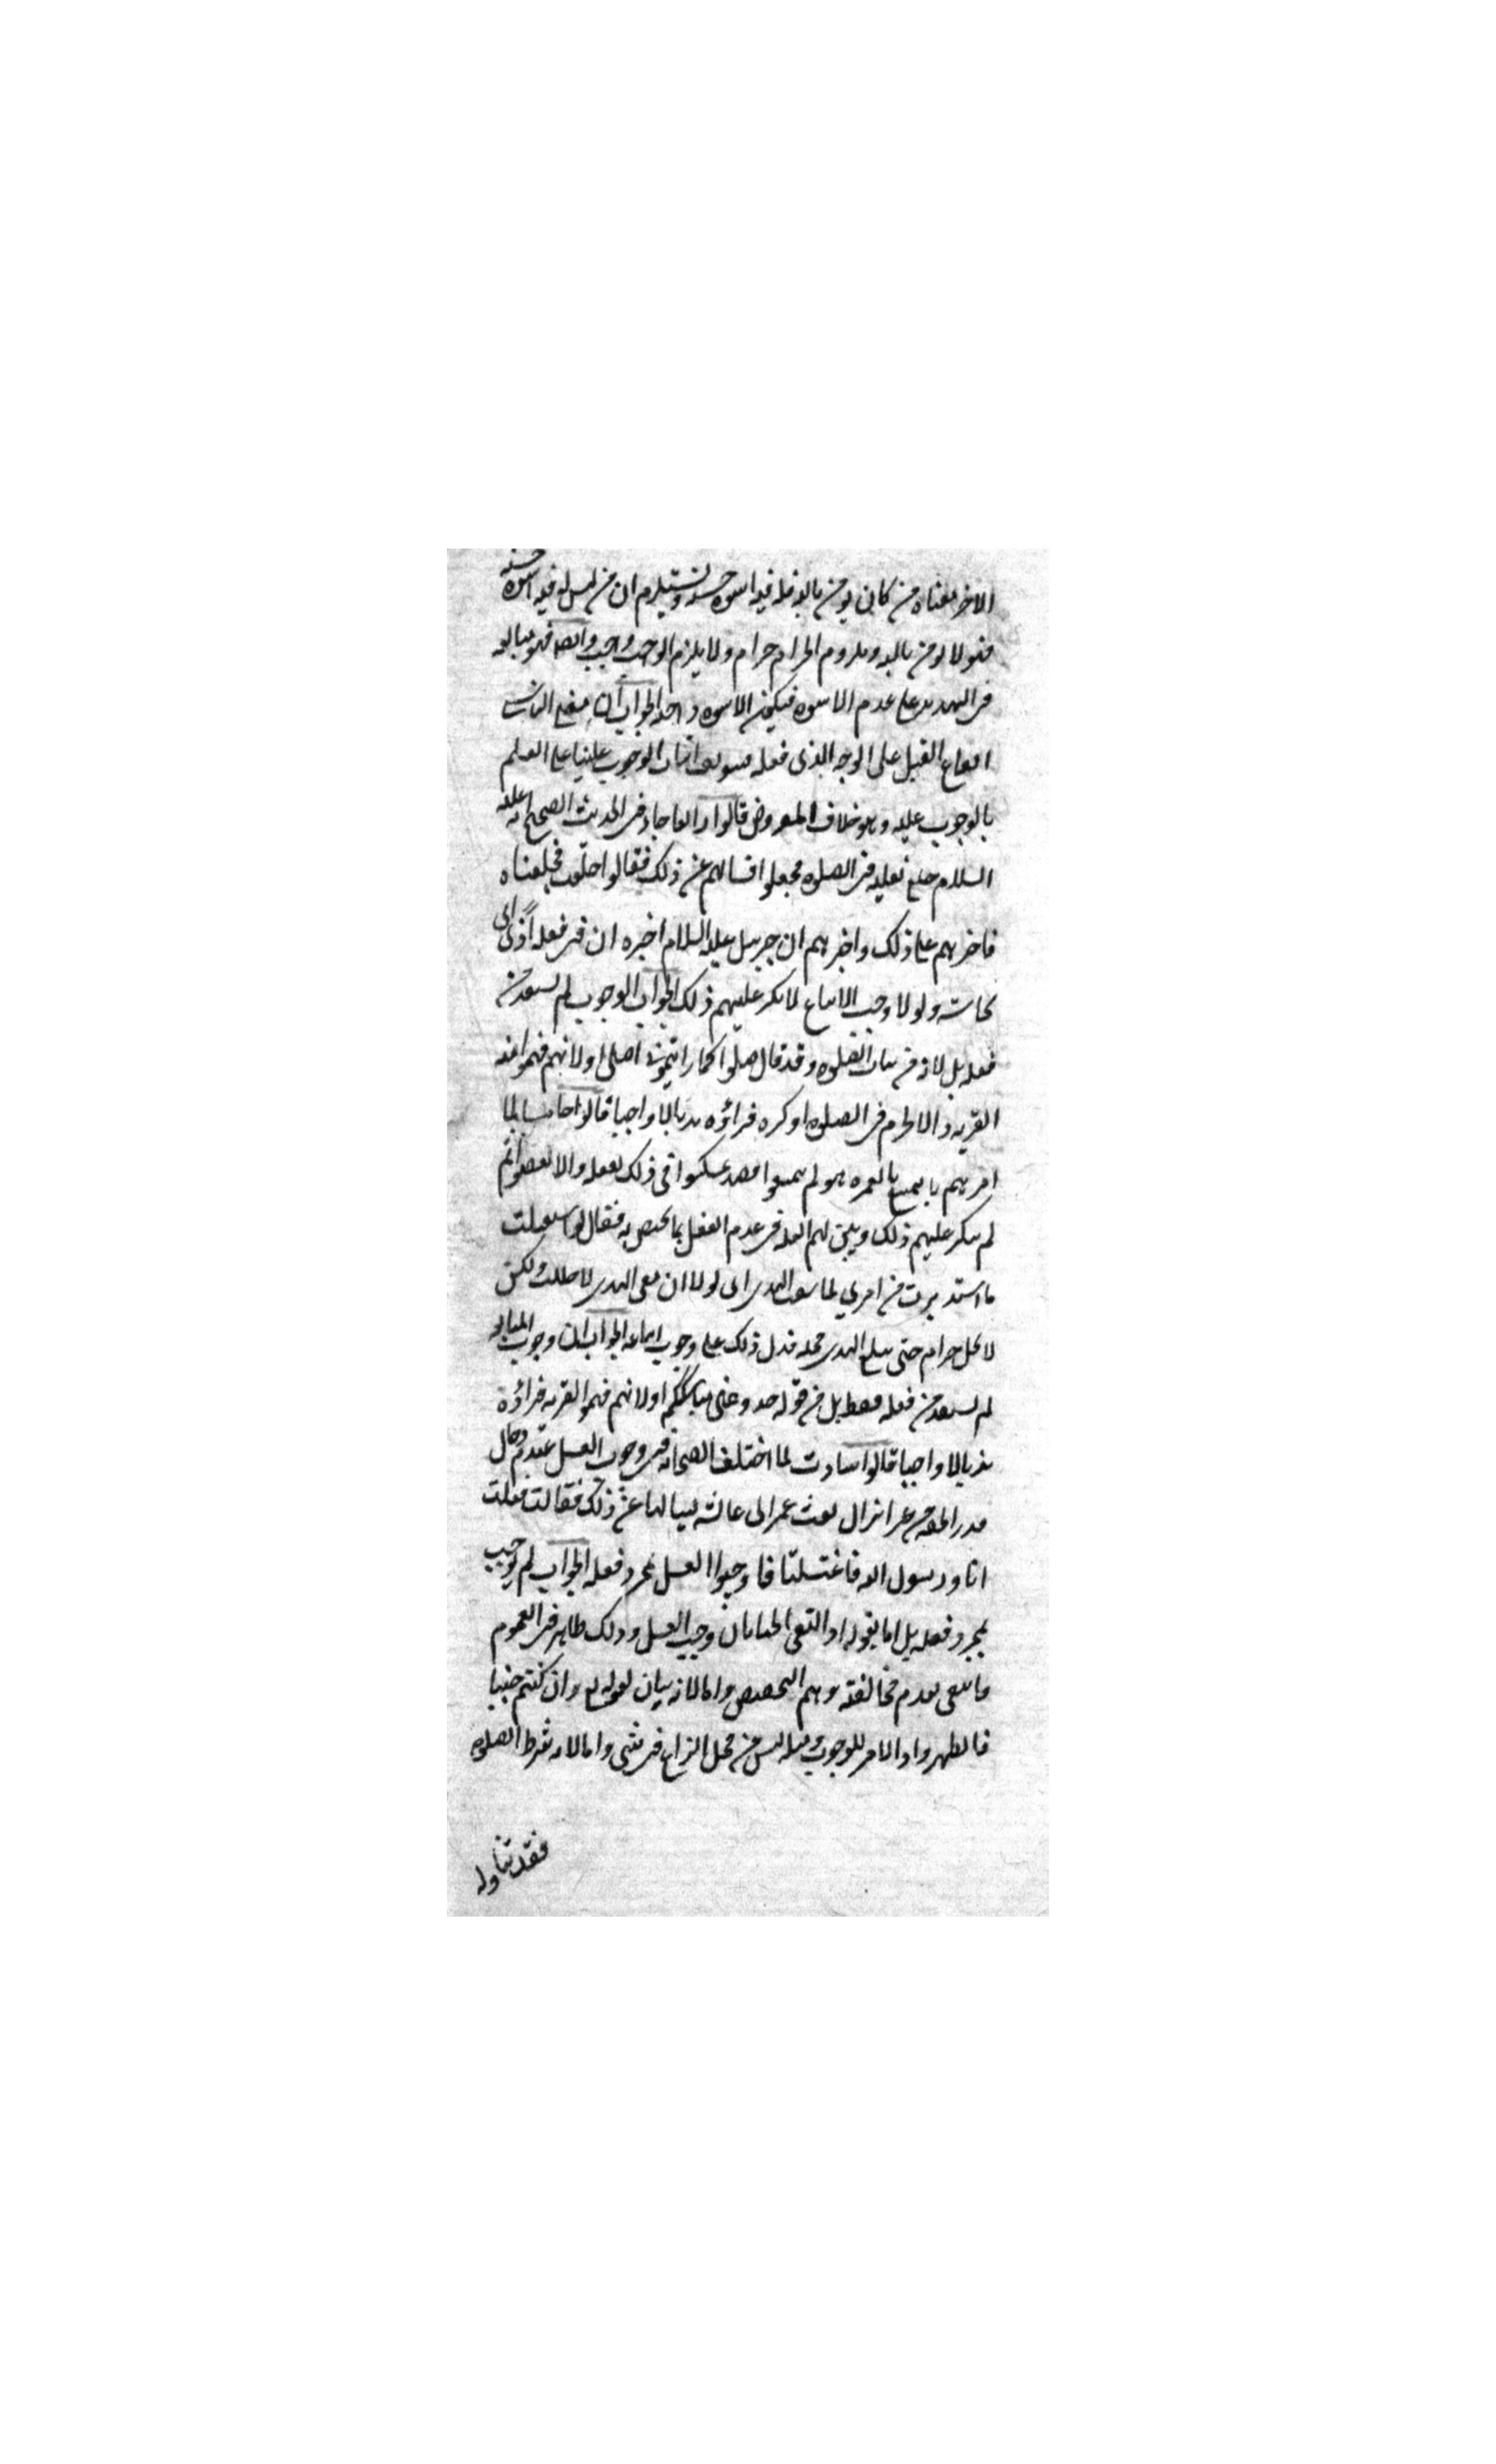 الاخر معناه من كان يومن بالله فله فيه اسوة حسنة ويستلزم ان من ليس له فيه اسوة حسنة
فهو لا يومن بالله وملزوم الحرام حرام ولا يلزم الواجب واجب وايضا فهو مبالغه
فى التهديد على عدم الاسوه فيكون الاسوه واجبه الجواب ان معنى التاسى
ايقاع الفعل على الوجه الذى فعله فيتوقف اثبات الوجوب علينا على العلم
بالوجوب عليه وهو خلاف المفروض قالوا رابعا جاء فى الحديث الصحيح انه عليه
السلام خلع نعليه فى الصلوه فخلعوا فسالهم عن ذلك فقالوا خلعت فخلعنا
فاقرهم على ذلك واخبرهم ان جبريل عليه السلام اخبره ان فى نعله اذى اى
نجاسة ولولا وجب الاتباع لانكر عليهم ذلك الجواب الوجوب لم يستفد من
فعله بل لانه من هيات الصلوه وقد قال صلوا كما رايتمونى اصلى او لانهم فهموا منه
القربه والا لحرم فى الصلوه او كره فراوه ندبا لا واجبا قالوا خامسا لما
امرهم بالتمتع بالعمره هو لم يتمتع فتمسكوا فى ذلك بفعله
لم ينكر عليهم ذلك وبين لهم العله فى عدم الفعل بما يختص به فقال لو استقبلت
ما استدبرت من امري لما سقت الهدى اى لولا ان معى الهدى لاحللت ولكن
لا يحل حرام حتى يبلغ الهدى محله فدل ذلك على وجوب اتباعه الجواب ان وجوب المتابعه
لم يستفد من فعله فقط بل من قوله خذوا عنى مناسككم او لانهم فهموا القربه فراؤه
ندبا لا واجبا قالوا سادسا لما اختلف الصحابه فى وجوب الغسل
من غير انزال بعث عمر الى عائشه ليسالها عن ذلك فقالت فعلت
انا ورسول الله فاغتسلنا فاوجبوا الغسل بمجرد فعله الجواب لم يوجب
بمجرد فعله بل اما بقوله اذا التقى الختانان وجب الغسل وذلك ظاهر فى العموم
فانتفى بعدم مخالفته وهم التخصيص واما لانه بيان لقوله تع وان كنتم جنبا
فاطهروا والامر للوجوب ومثله ليس من محل النزاع فى شى واما لانه شرط الصلوه
فقد تناوله